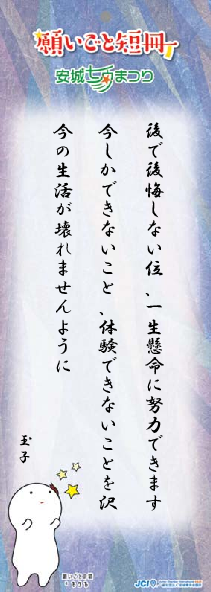 願いごと短冊
安城七夕まつり
後で後悔しない位、一生懸命に努力できます
今しかできないこと、体験できないことを沢
今の生活が壊れませんように
玉子
JCI